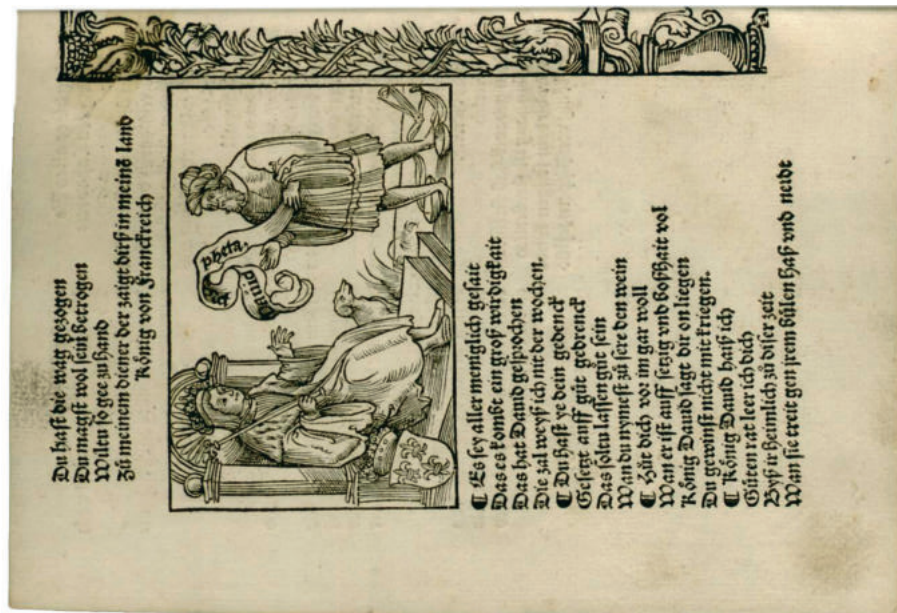 Du hast die wag gezogen
Du magst wol sein betrogen
Wiltu so gee zů hand
Zů meinem diener der zaigt dirß in meinē land
König von Franckreich
pheta.
Dauid
¶ Es sey aller meniglich gesait
Das es kombt ein groß wirdigkait
Das hat Dauid gesprochen
Die zal weyß ich mit der wochen.
¶ Du hast ye dein gedenck
Gesetzt auff gůt gedrenck
Das soltu lassen gůt sein
Wan du nymest zů sere den wein
¶ Hüt dich vor im gar woll
Wan er ist auff setzig vnd boßhait vol
König Dauid sagt dir on liegen
Du gewinst nicht mit kriegen.
¶ König Dauid haiß ich
Gůten rat leer ich dich
Byß ir heimlich zů diser zeit
Wan sie treit gen jrem bůlen haß vnd neidt